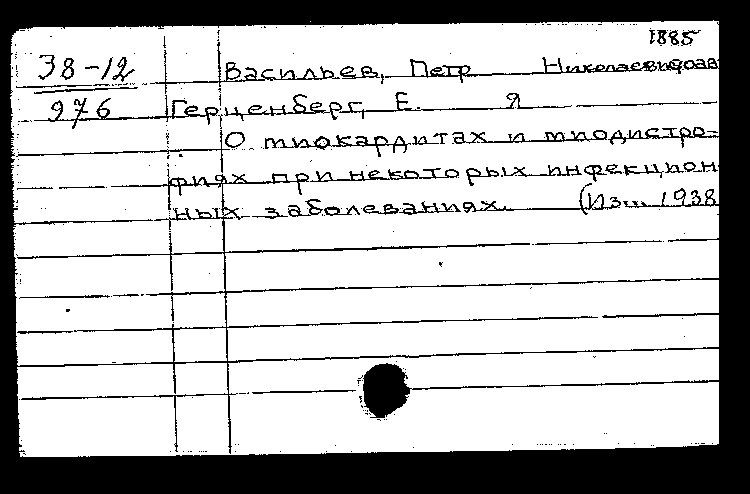 1885
38-12 Васильев, Петр
976 Герценберг, Е. Я
О миокардитах и миодистро-
фиях при некоторых инфекцион
ных заболеваниях. (Из... 1938